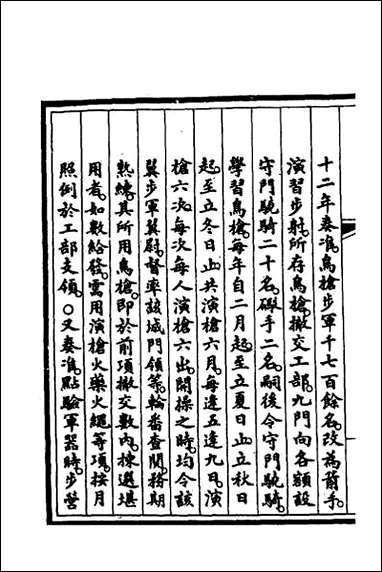 十二年奏准。鳥槍步軍千七百餘名。改為箭手。
演習步射。所存鳥槍。撤交工部。九門向各額設
守門驍騎二十名。礮手二名。嗣後令守門驍騎。
學習鳥槍。每年自二月起至立夏日止。立秋日
起。至立冬日止。共演槍六月。每逢五逢九日。演
槍六次。每次每人演槍六出。開操之時。均令該
翼步軍翼尉。督率該城門領等。輪番查閱。務期
熟練。其所用鳥槍。即於前項撤交數內。揀選堪
用者。如數給發。需用演槍火藥火繩等項。按月
照例於工部支領。○又奏准。點驗軍器時。步營